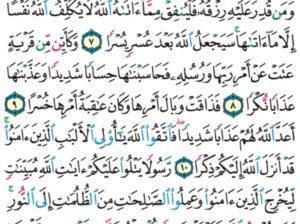 وَمَن قُدِرَ عَلَيْهِ رِزْقُهُۥ فَلْيُنفِقْ مِمَّآ ءَاتَىٰهُ ٱللَّهُ لَا يُكَلِّفُ ٱللَّهُ نَفْسًا
إِلَّا مَآ ءَاتَىٰهَا سَيَجْعَلُ ٱللَّهُ بَعْدَ عُسْرٍ يُسْرًا ٧ وَكَأَيِّن مِّن قَرْيَةٍ
عَتَتْ عَنْ أَمْرِ رَبِّهَا وَرُسُلِهِۦ فَحَاسَبْنَٰهَا حِسَابًا شَدِيدًا وَعَذَّبْنَٰهَا
عَذَابًا نُّكْرًا ٨ فَذَاقَتْ وَبَالَ أَمْرِهَا وَكَانَ عَٰقِبَةُ أَمْرِهَا خُسْرًا ٩
أَعَدَّ ٱللَّهُ لَهُمْ عَذَابًا شَدِيدًا فَٱتَّقُوا۟ ٱللَّهَ يَٰٓأُو۟لِى ٱلْأَلْبَٰبِ ٱلَّذِينَ ءَامَنُوا۟
قَدْ أَنزَلَ ٱللَّهُ إِلَيْكُمْ ذِكْرًا ١٠ رَّسُولًا يَتْلُوا۟ عَلَيْكُمْ ءَايَٰتِ ٱللَّهِ مُبَيِّنَٰتٍ
لِّيُخْرِجَ ٱلَّذِينَ ءَامَنُوا۟ وَعَمِلُوا۟ ٱلصَّٰلِحَٰتِ مِنَ ٱلظُّلُمَٰتِ إِلَى ٱلنُّورِ